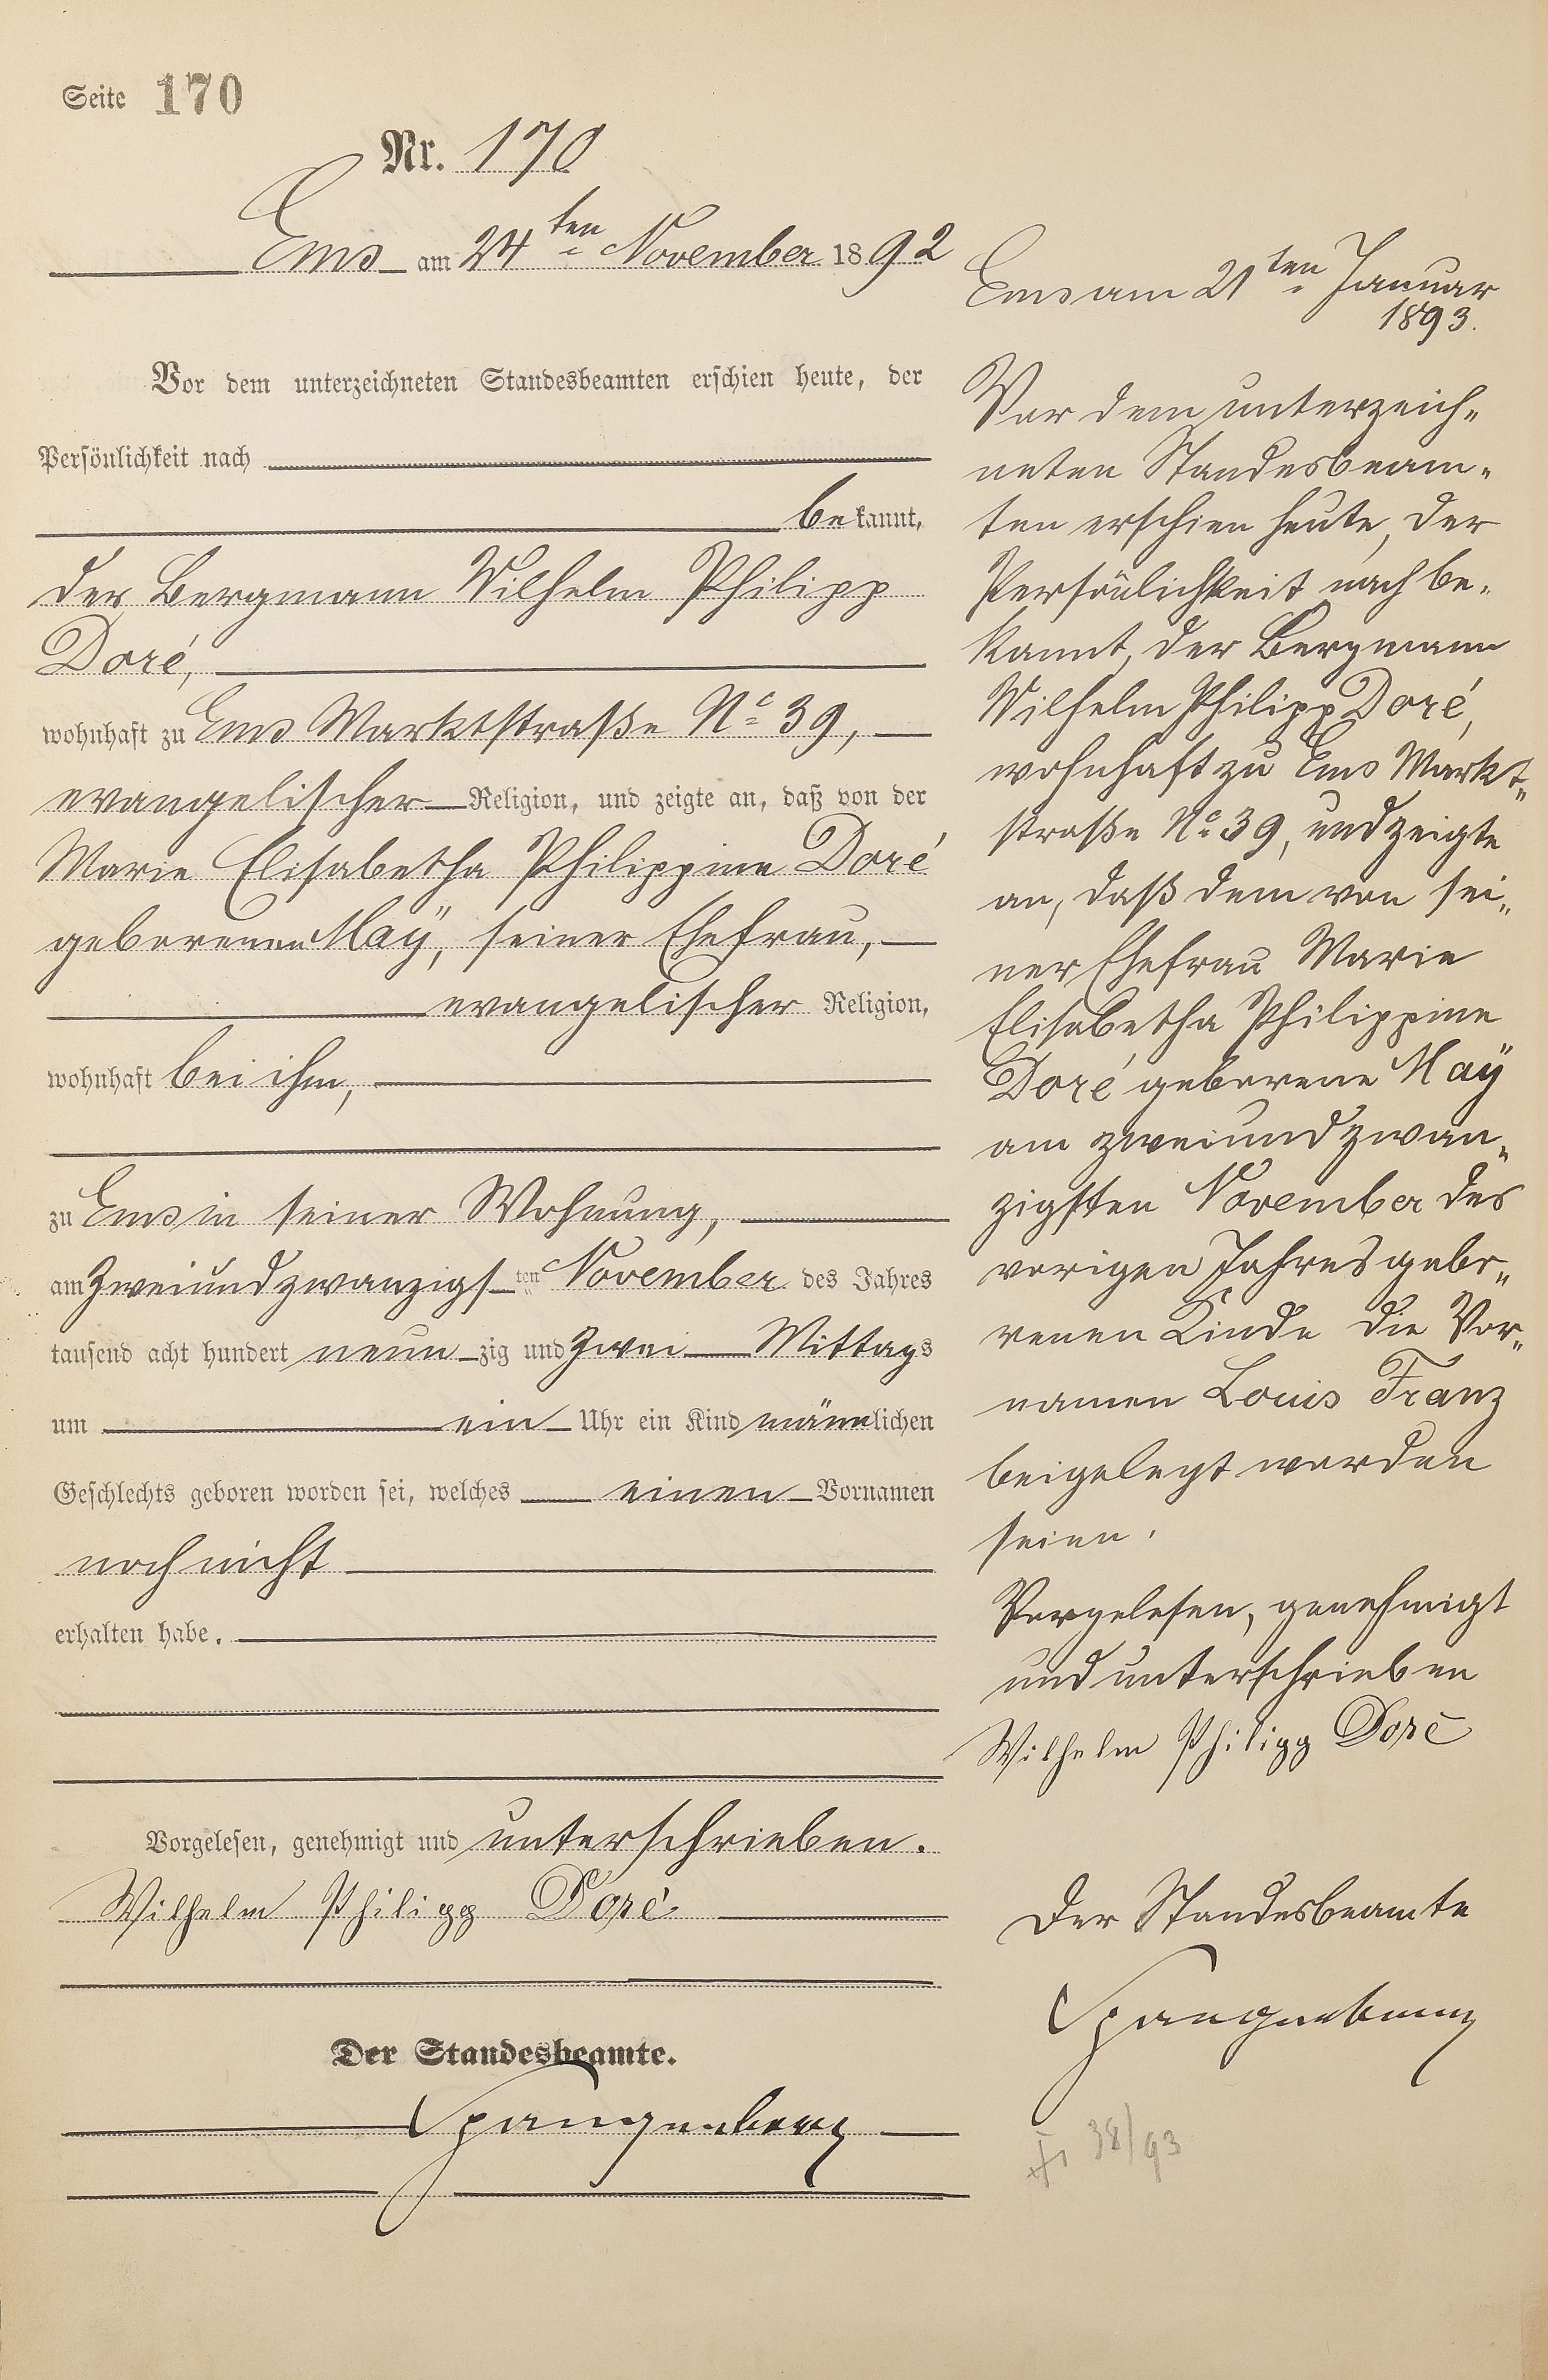 Seite 170
Nr. 170
Ems am 24ten November 1892
Vor dem unterzeichneten Standesbeamten erschien heute, der
Persönlichkeit nach
bekannt,
der Bergmann Wilhelm Philipp
Doré,
wohnhaft zu Ems Marktstraße No 39,
evangelischer Religion, und zeigte an, daß von der
Marie Elisabetha Philippine Doré
geborenen Maÿ, seiner Ehefrau,
evangelischer Religion,
wohnhaft bei ihm,
zu Ems in seiner Wohnung,
am zweiundzwanzigsten November des Jahres
tausend acht hundert neunzig und zwei Mittags
um ein Uhr ein Kind männlichen
Geschlechts geboren worden sei, welches einen Vornamen
noch nicht
erhalten habe.
Vorgelesen, genehmigt und unterschrieben.
Wilhelm Philipp Doré
Der Standesbeamte.
Spangenberg
Ems am 21ten Januar
1893.
Vor dem unterzeich„
neten Standesbeam„
ten erschien heute, der
Persönlichkeit nach be„
kannt, der Bergmann
Wilhelm Philipp Doré,
wohnhaft zu Ems Markt„
straße No 39, und zeigte
an, daß dem von sei„
ner Ehefrau Marie
Elisabetha Philippine
Doré geborene Maÿ
am zweiundzwan„
zigsten November des
vorigen Jahres gebo„
renen Kinde die Vor„
namen Louis Franz
beigelegt worden
seien.
Vorgelesen, genehmigt
und unterschrieben
Wilhelm Philipp Doré
Der Standesbeamte
Spangenberg
38/93